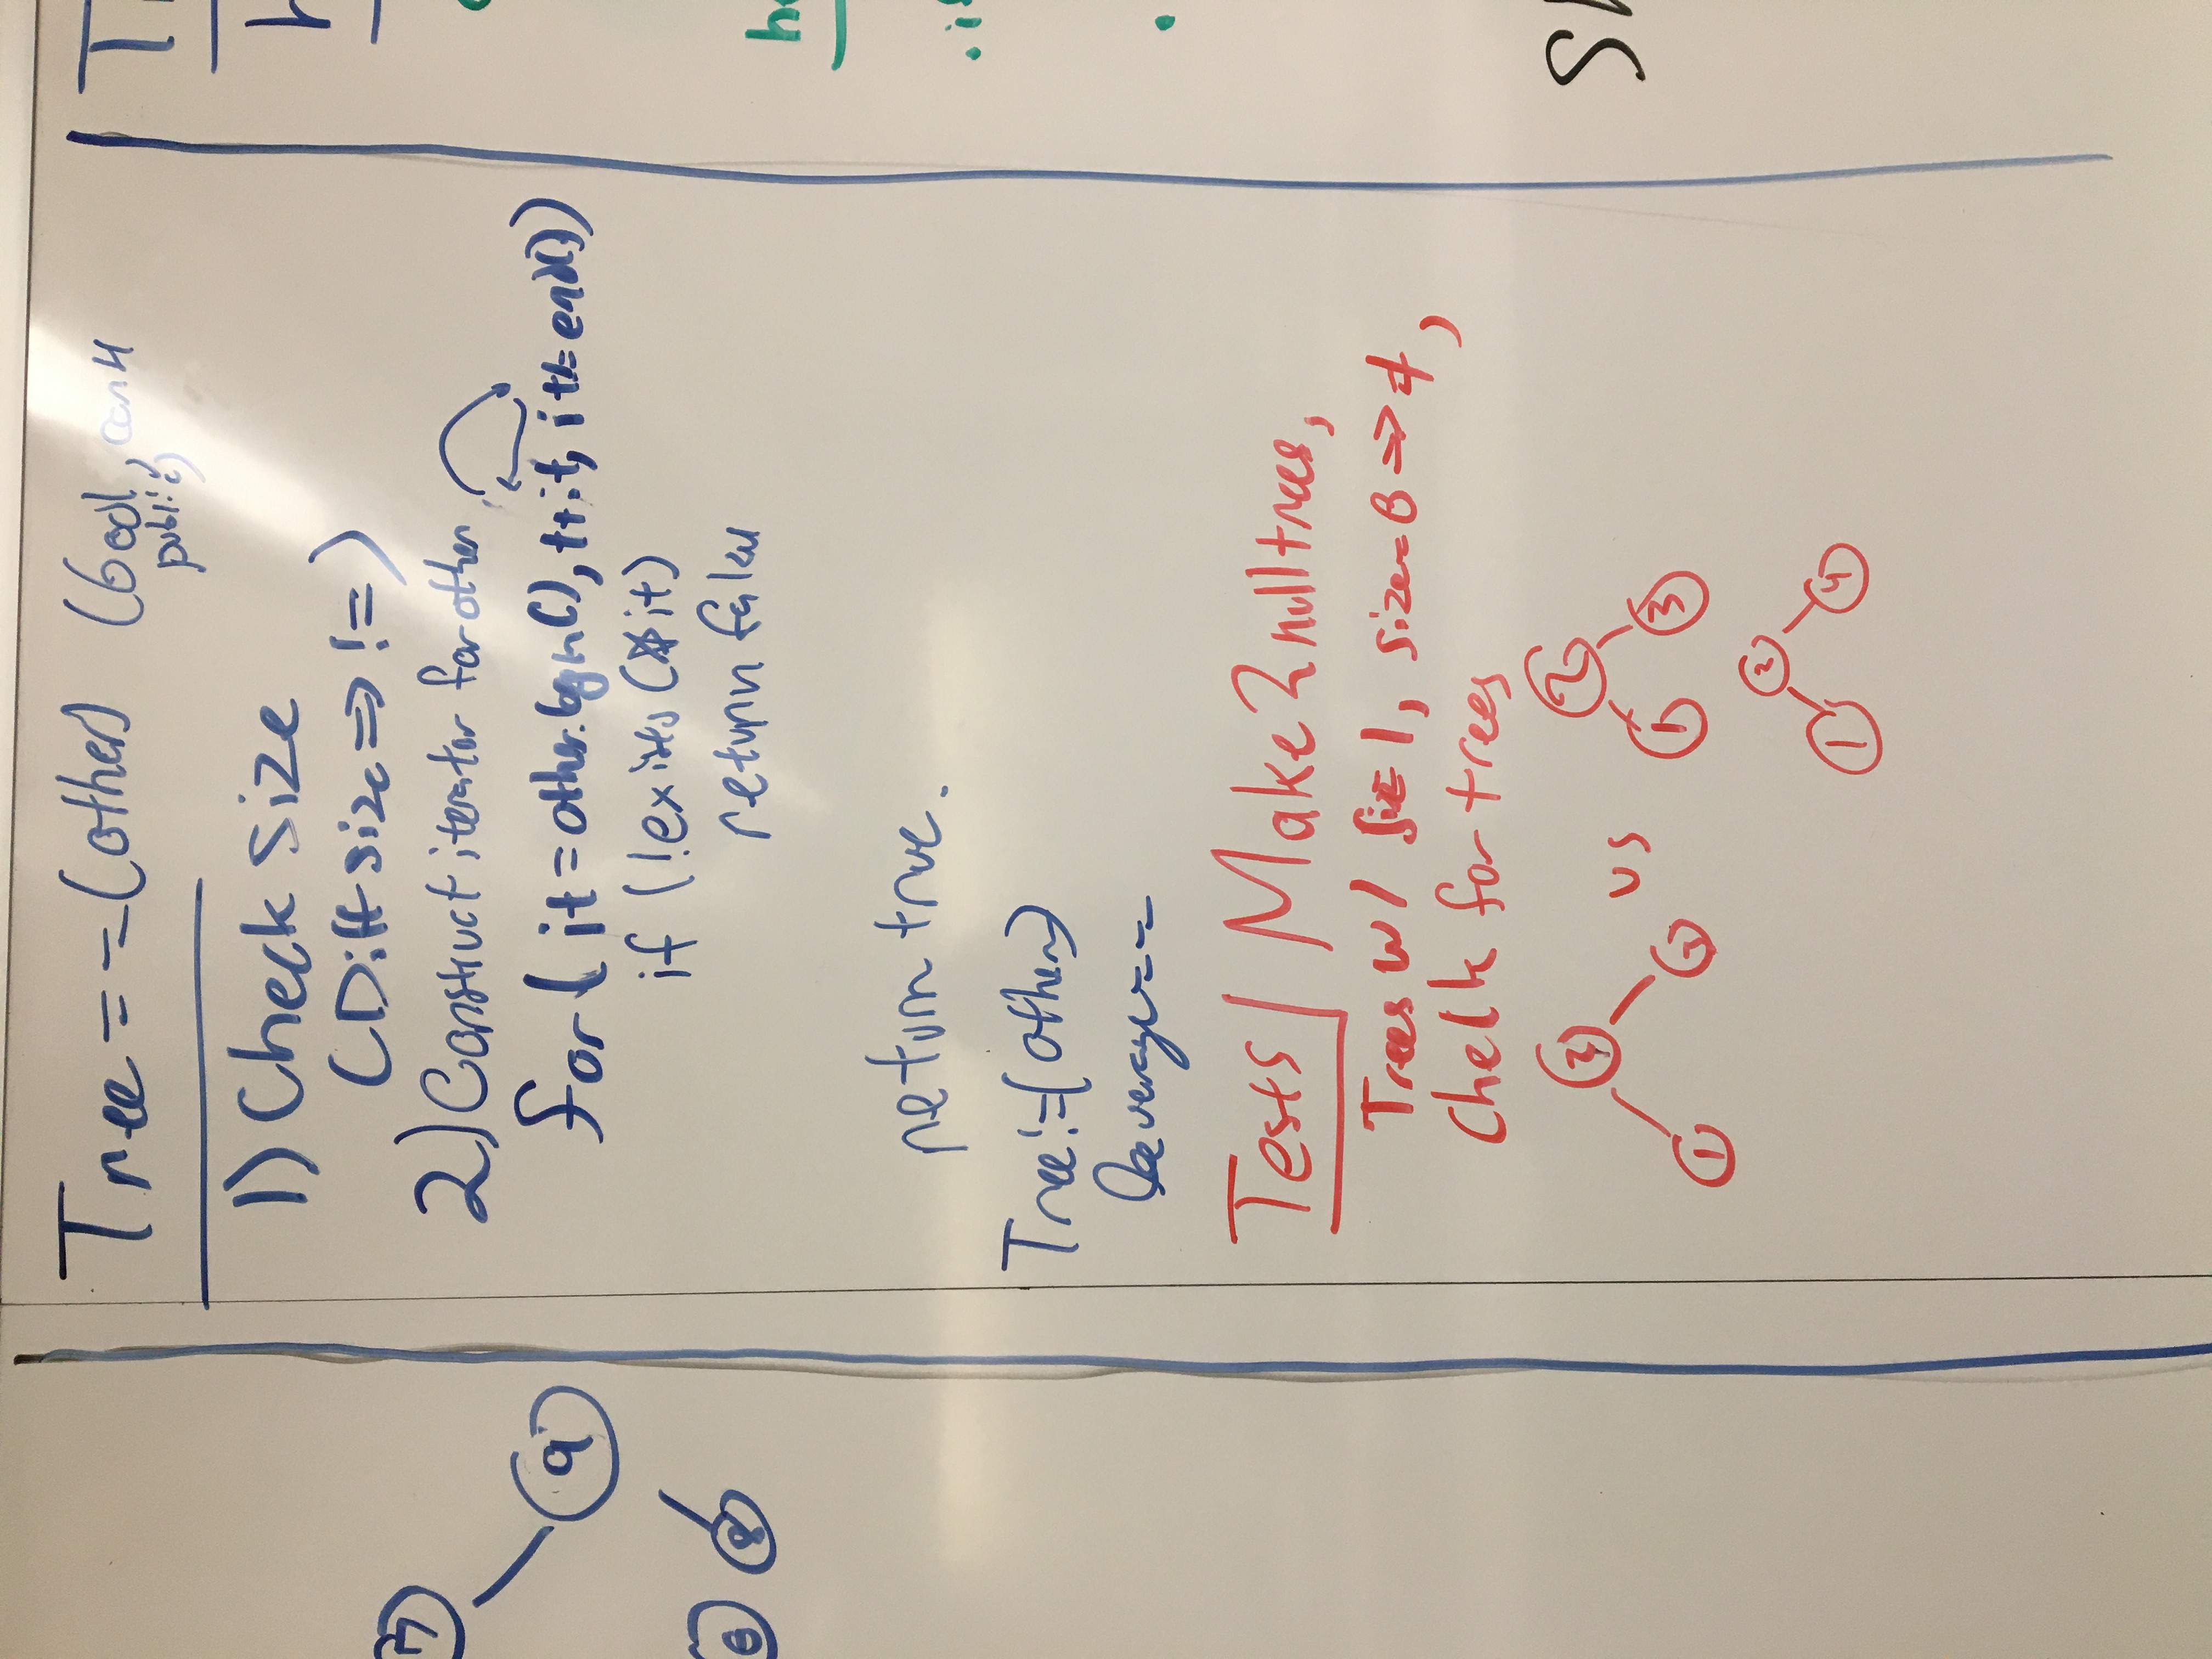 Tree==(other) (bool, const
public)
1) Check size
(Diff size => !=)
2) Construct iterator for other
for( it = other.begin(), ++it, it != end())
if (!exists (*it)
return false
return true.
Tree!=(other)
leverage ==
Tests/ Make 2 null trees,
Trees w/ size 1, size=0 => ≠,
Check for trees
2 vs 2
1 3 1 3
2
1 4
7
9
6 8
T
h
.
Sh